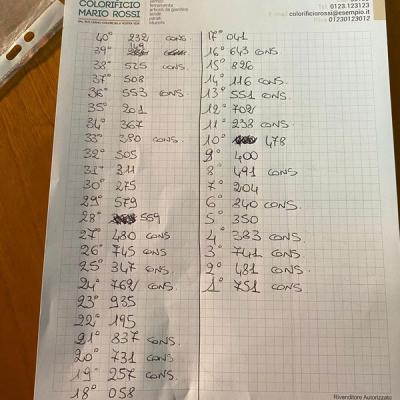 COLORIFICIO
MARIO ROSSI
ferramenta
articoli da giardino
Tel. 0123.123123
E-mail colorificiorossi@esempio.it
P.iva 01230123012
40° 232 CONS.
39° 149
38° 525 CONS.
37° 508
36° 553 CONS.
35° 201
34° 367
33° 380 CONS.
32° 505
31° 311
30° 275
29° 579
28° 559
27° 480 CONS
26° 745 CONS
25° 347 CONS.
24° 762 CONS
23° 935
22° 195
21° 837 CONS.
20° 731 CONS.
19° 257 CONS.
18° 058
17° 041
16° 643 CONS
15° 826
14° 116 CONS.
13° 551 CONS
12° 702
11° 238 CONS.
10° 478
9° 400
8° 491 CONS
7° 204
6° 240 CONS.
5° 350
4° 383 CONS
3° 741 CONS.
2° 481 CONS.
1° 751 CONS
Rivenditore Autorizzato